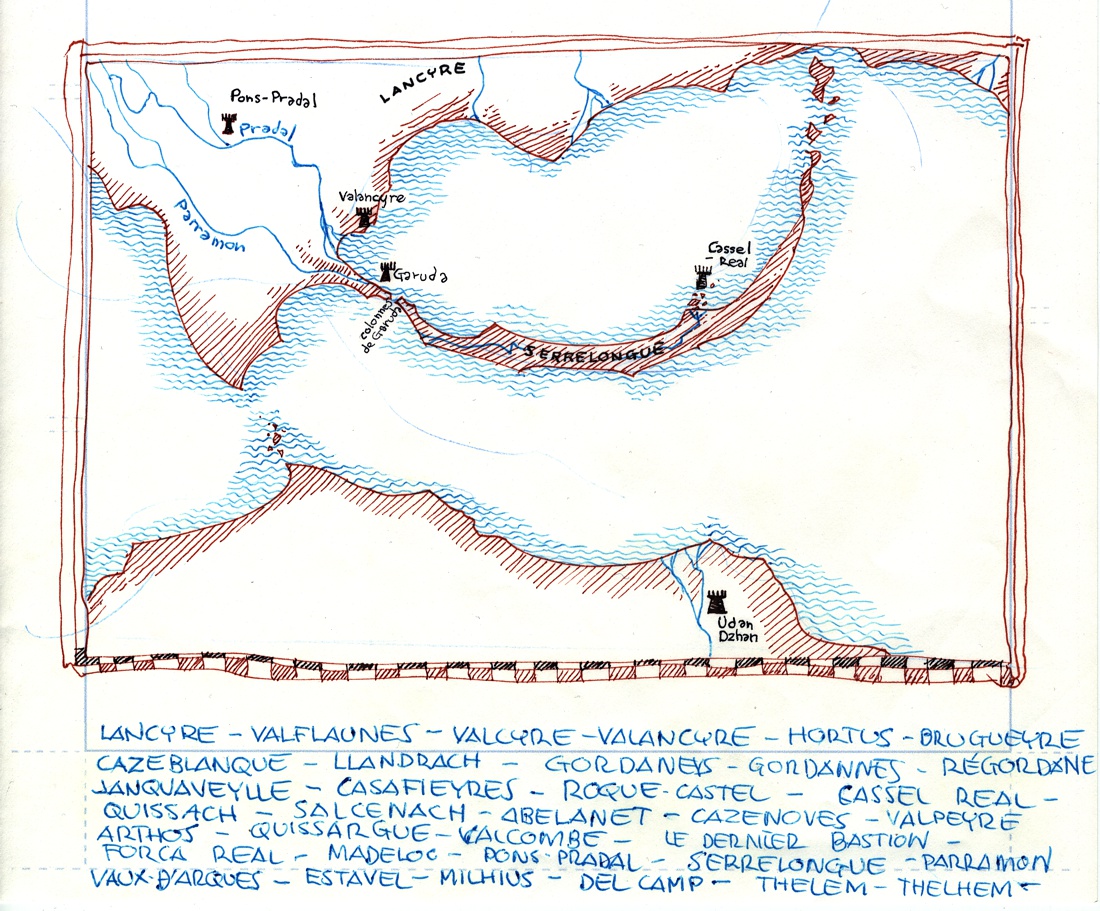 LANCYRE
Pons-Pradal
Pradal
Valancyre
Parramon
Cassel
- Real
Garuda
colonnes
de Garuda
SERRELONGUE
Udan
Dzhan
LANCYRE - VALFLAUNES - VALCYRE - VALANCYRE - HORTUS - BRUGUEYRE
CAZEBLANQUE - LLANDRACH - GORDANEYS - GORDANNES - RÉGORDANE
JANQUAVEYLLE - CASAFIEYRES - ROQUE-CASTEL - CASSEL REAL -
QUISSACH - SALCENACH - ABELANET - CAZENOVES - VALPEYRE
ARTHOS - QUISSARGUE - VALCOMBE - LE DERNIER BASTION -
FORCA REAL - MADELOC - PONS-PRADAL - SERRELONGUE - PARRAMON
VAUX-D'ARQUES - ESTAVEL - MILHIUS - DEL CAMP - THELEM - THELHEM -